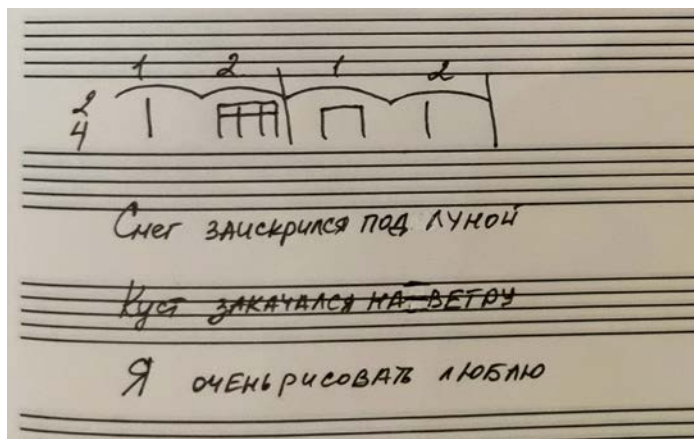 1 2 1 2
2
4
Снег заискрился под луной
Куст закачался на ветру
Я очень рисовать люблю